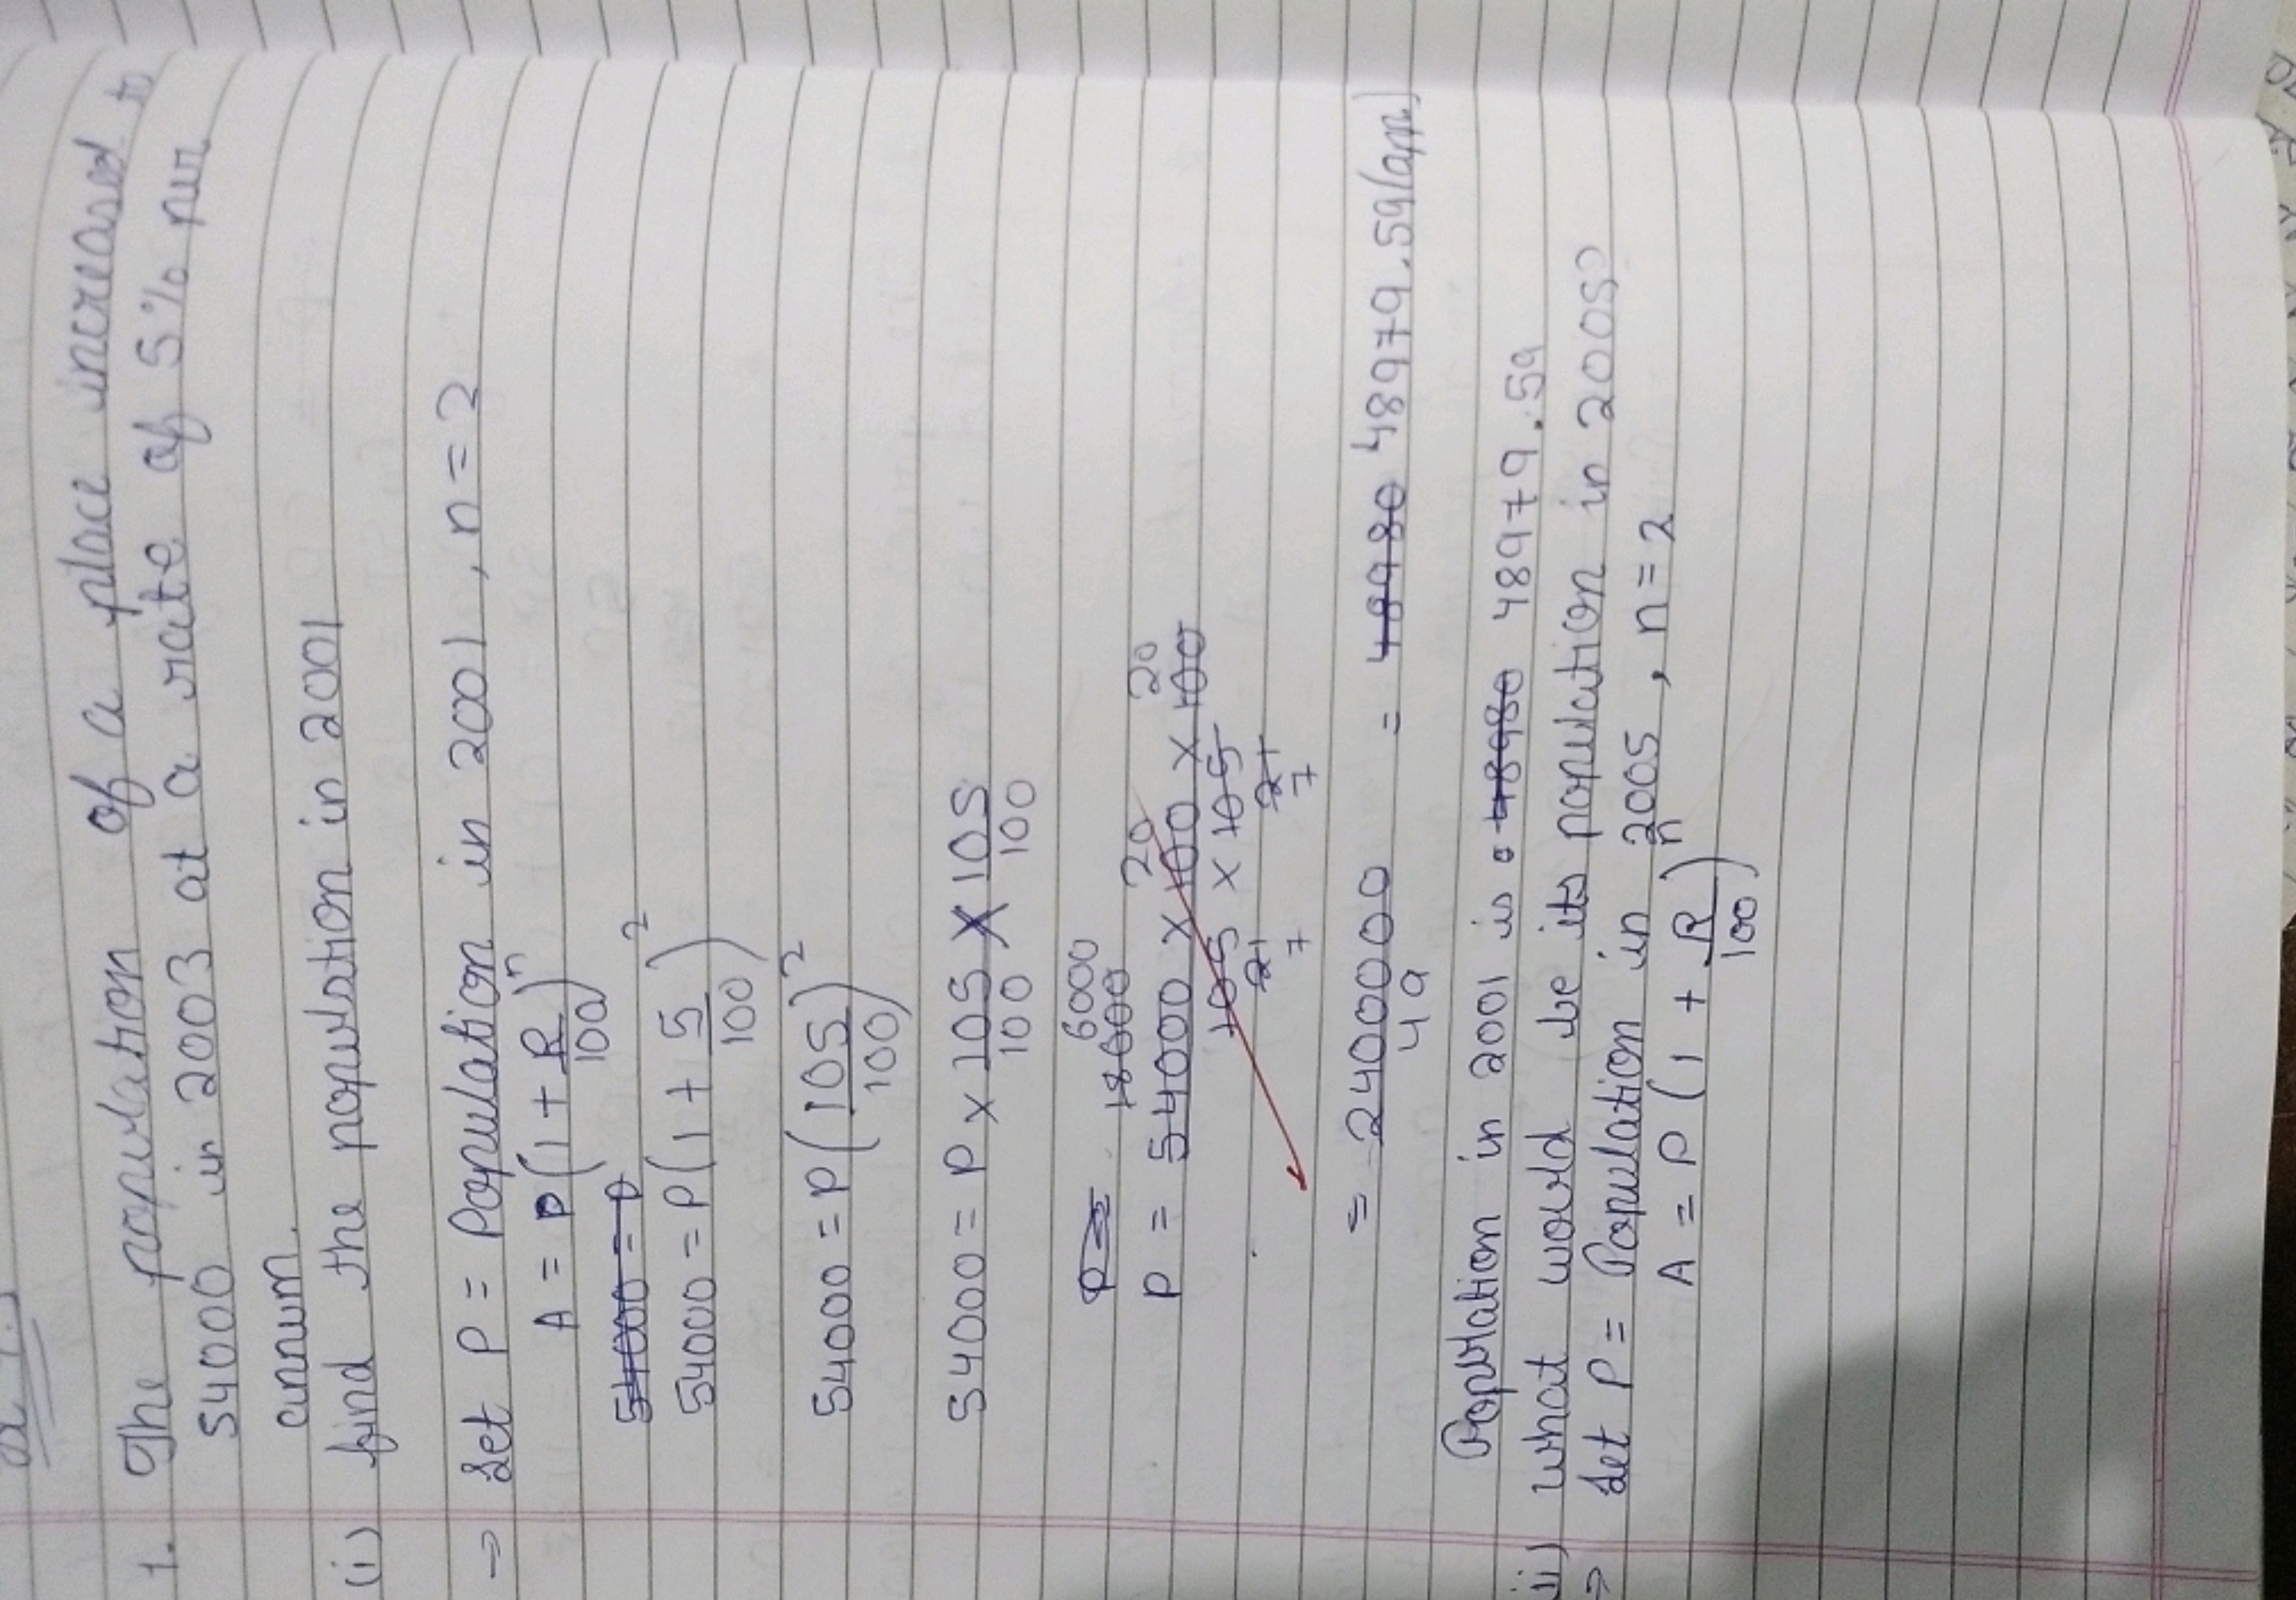 1. The population of a place increased
54000 in 2003 at a rate of 5% per
annum.
(i) find the population in 2001
→ Let P = Population in 2001, n = 2
A = P(1 + R/100)^n
54000 = P
54000 = P(1 + 5/100)^2
54000 = P(105/100)^2
54000 = P × 105/100 × 105/100
P =
6000
18000 20 20
P = 54000 × 100 × 100
105 × 105
21 21
7 7
= 2400000/49 = 48980 48979.59(app)
Population in 2001 is 48980 48979.59
ii) what would be its population in 2005?
→ Let P = Population in 2005, n = 2
A = P(1 + R/100)^n